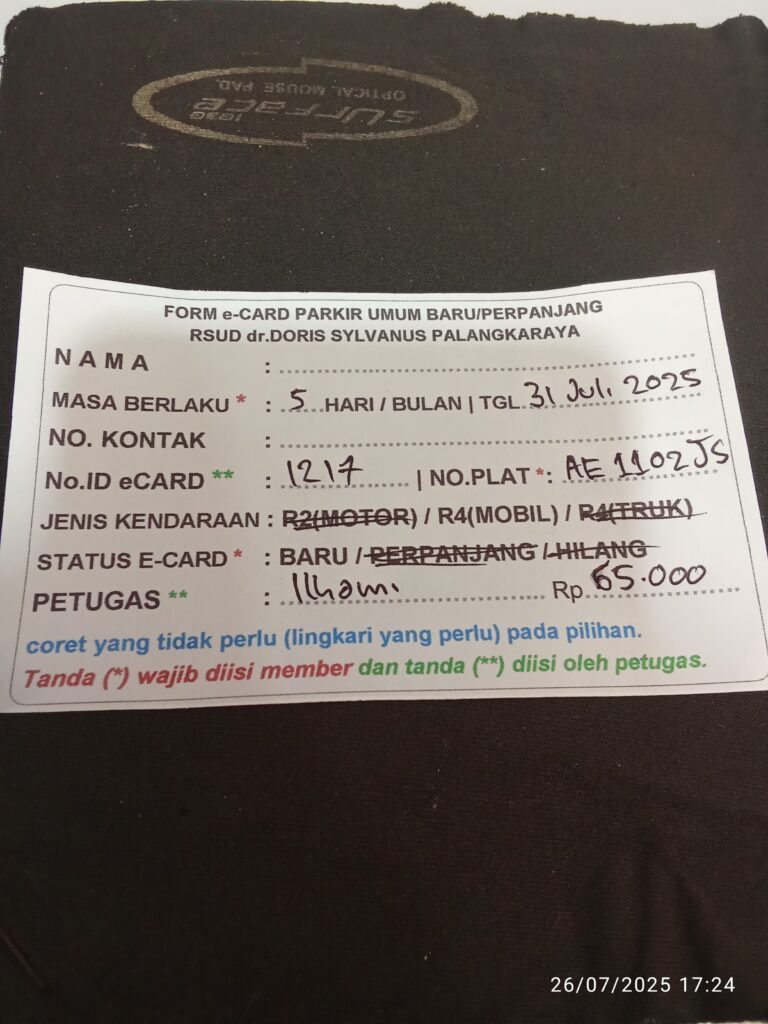 surface
1030
OPTICAL MOUSE PAD.
FORM e-CARD PARKIR UMUM BARU/PERPANJANG
RSUD dr.DORIS SYLVANUS PALANGKARAYA
NAMA :
MASA BERLAKU * : 5 HARI / BULAN | TGL 31 Juli 2025
NO. KONTAK :
No.ID eCARD ** : 1217 | NO.PLAT *: AE 1102 JS
JENIS KENDARAAN : R2(MOTOR) / R4(MOBIL) / R4(TRUK)
STATUS E-CARD * : BARU / PERPANJANG / HILANG
PETUGAS ** : Ilhami Rp 65.000
coret yang tidak perlu (lingkari yang perlu) pada pilihan.
Tanda (*) wajib diisi member dan tanda (**) diisi oleh petugas.
26/07/2025 17:24